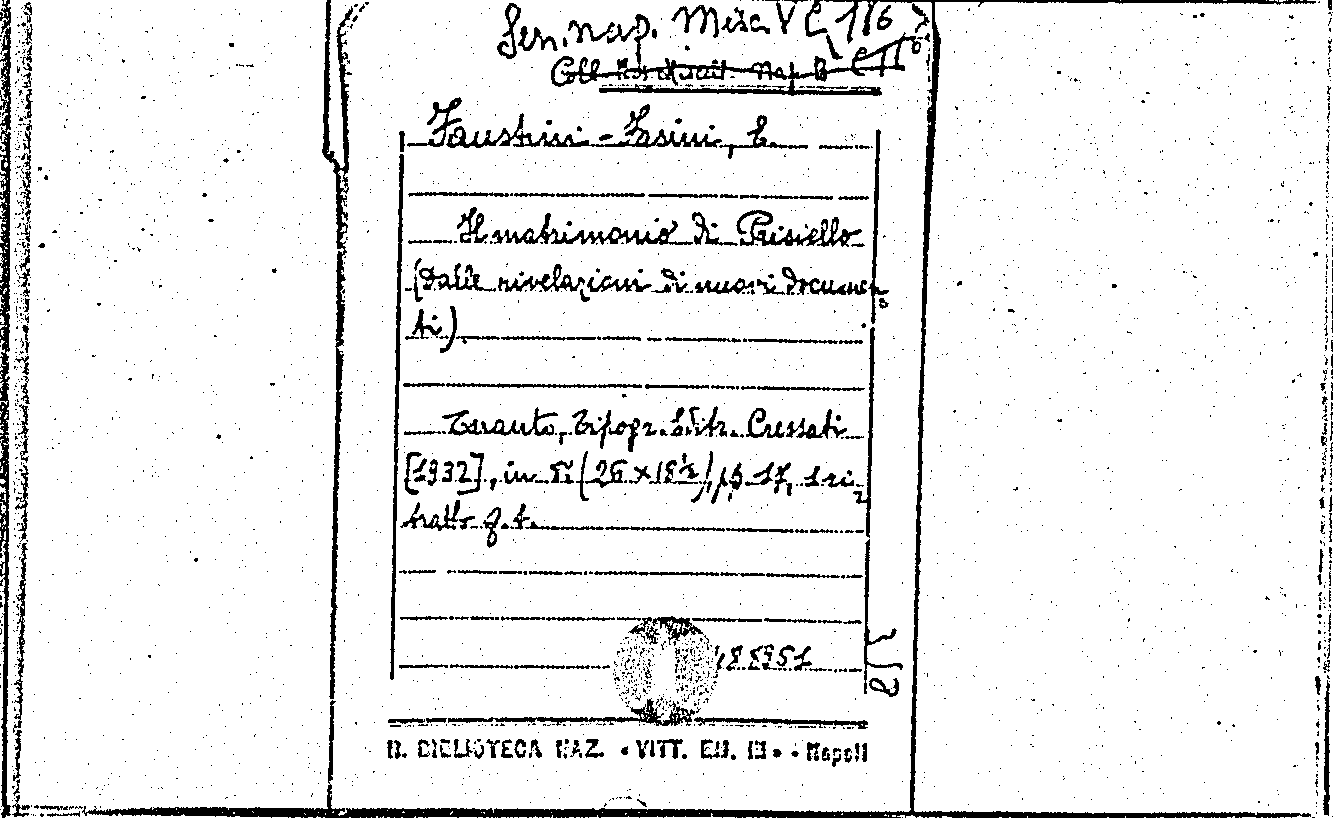 Sez. nap. Misc. V C 116
Coll. Nap. B
Faustini-Fasini, E.
Il matrimonio di Paisiello
(Dalle rivelazioni di nuovi documen-
ti).
Taranto, Tipogr. Editr. Cressati
[1932], in 8° (26 x 18½), p. 17, 1 ri-
tratto f. t.
485951
R. BIBLIOTECA NAZ. «VITT. EM. III» - Napoli